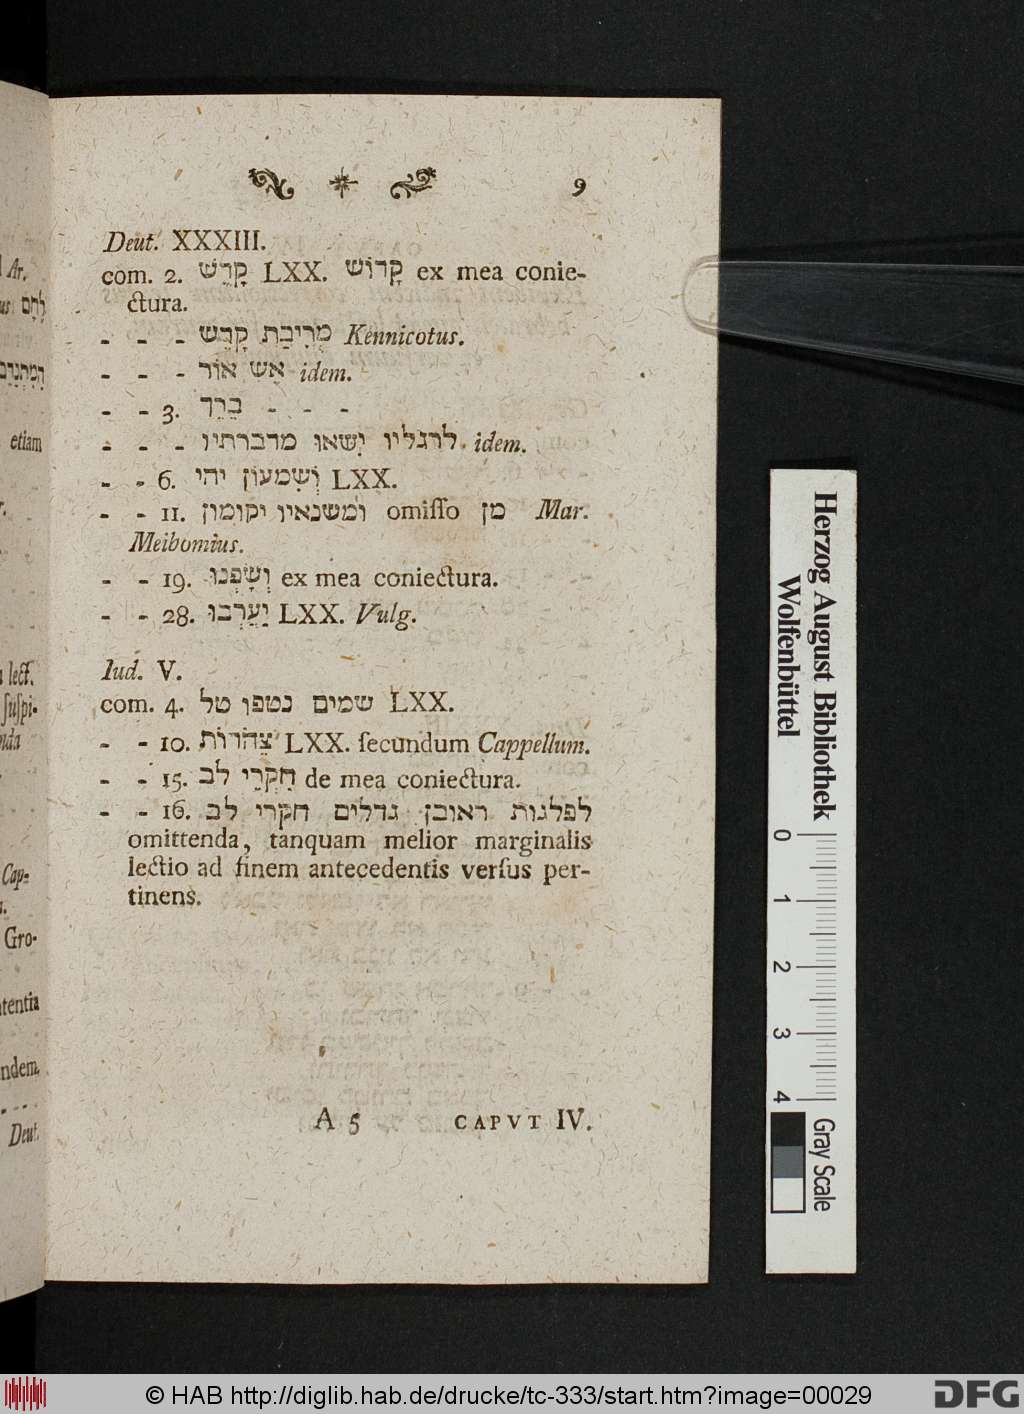 9
Deut. XXXIII.
com. 2. קָדֵשׁ LXX. קָדוֹשׁ ex mea conie-
ctura.
- - - מְרִיבַת קָדֵשׁ Kennicotus.
- - - אֵשׁ אוֹר idem.
- - 3. בֵרֵךְ - - -
- - - לרגליו יִשאו מדברתיו idem.
- - 6. וְשִׁמעון יהי LXX.
- - 11. ומשנאיו יקומון omiſſo מן Mar.
Meibomius.
- - 19. וְשָׂפְנוּ ex mea coniectura.
- - 28. יַעַרְבוּ LXX. Vulg.
Iud. V.
com. 4. שמים נטפו טל LXX.
- - 10. צְהֹרוֹת LXX. ſecundum Cappellum.
- - 15. חִקְרֵי לב de mea coniectura.
- - 16. לפלגות ראובן גדלים חקרי לב
omittenda, tanquam melior marginalis
lectio ad finem antecedentis verſus per-
tinens.
A 5 CAPVT IV.
Ar.
etiam
lect.
ſuſpi-
Cap-
Gro-
Deut.
Herzog August Bibliothek
Wolfenbüttel
0 1 2 3 4
Gray Scale
© HAB http://diglib.hab.de/drucke/tc-333/start.htm?image=00029
DFG